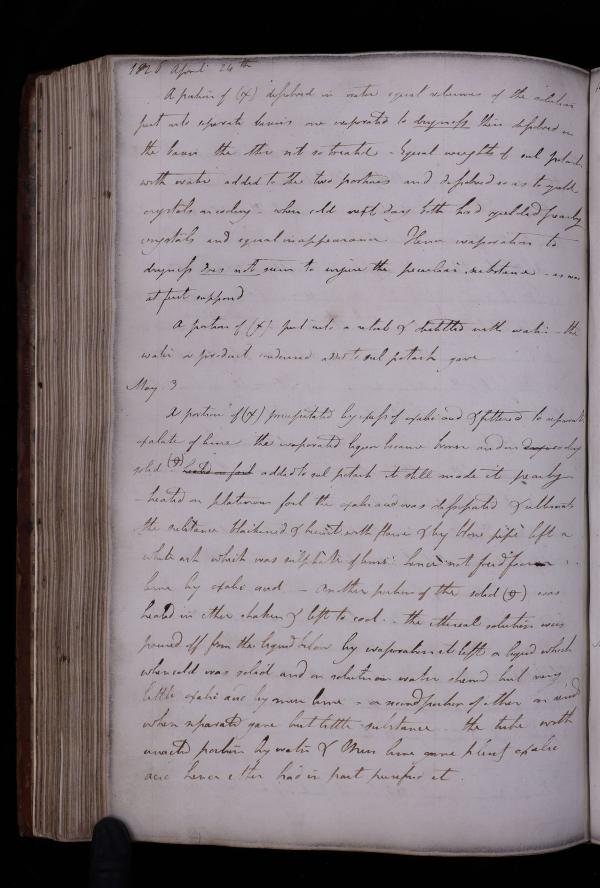 1826 April 24th
A portion of (x) dissolved in water equal volumes of the solution
put into separate basins one evaporated to dryness then dissolved in
the basin the other not so treated - Equal weights of sul potash
with water added to the two portions and dissolved so as to yield
crystals on cooling - when cold next day both had yielded pearly
crystals and equal in appearance Hence evaporation to
dryness does not seem to injure the peculiar substance - as was
at first supposed
A portion of (x) put into a retort & distilled with water - the
water or product condensed added to sul potash gave
May 3
A portion of (x) precipitated by excess of oxalic acid & filtered to separate
oxalate of lime the evaporated liquor became brown and on cooling
solid (θ) heated on foil added to sul potash it still made it pearly
- heated on platinum foil the oxalic acid was dissipated &
the substance thickened & burnt with flame & by blow pipe left a
white ash which was sulphate of lime: hence not freed from
lime by oxalic acid - Another portion of the solid (θ) was
heated in ether shaken & left to cool - the ethereal solution was
poured off from the liquid below by evaporation it left a liquid which
when cold was solid and on solution in water shewed but very
little oxalic acid by mur lime - a second portion of ether in
when separated gave but little substance the tube with
portion by water & Mur lime gave plenty oxalic
acid hence ether had in part purified it.